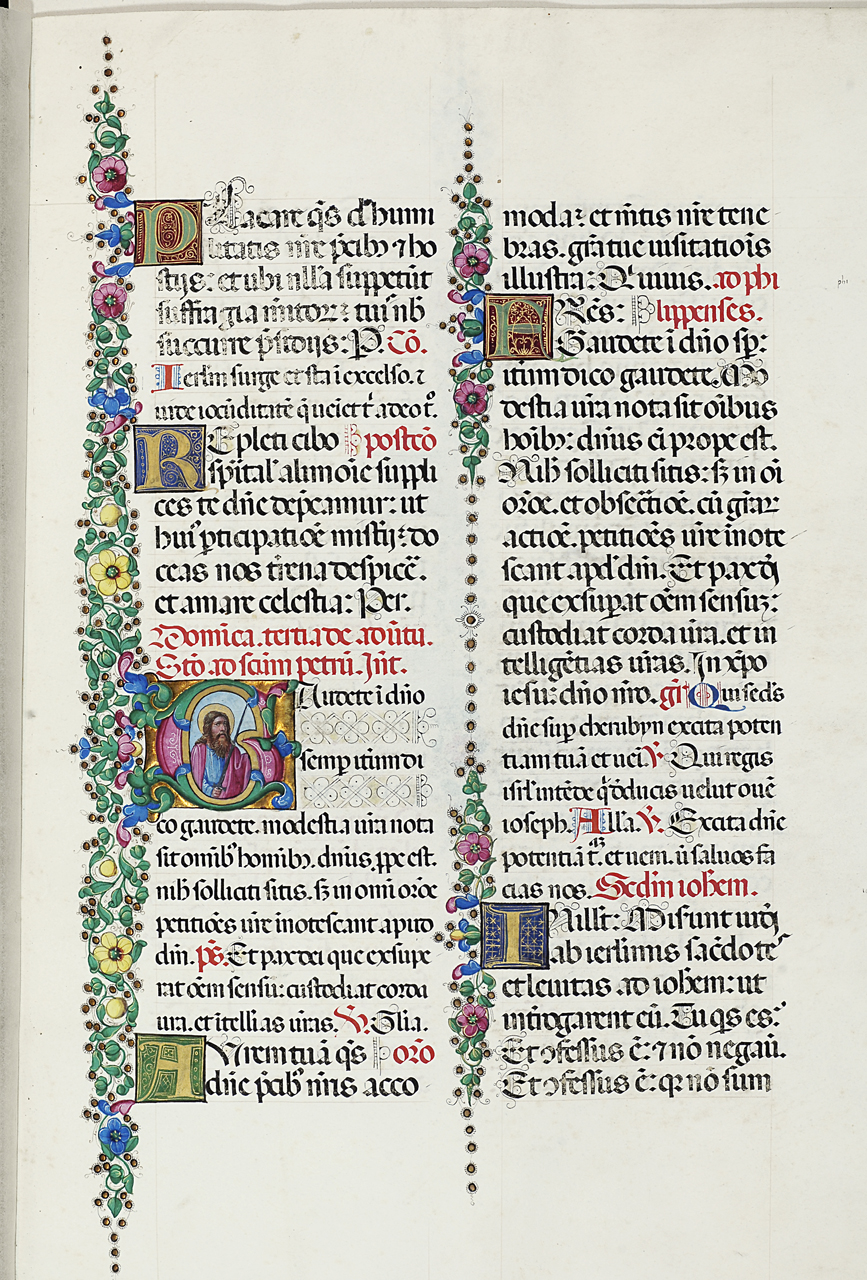 Placare q̄s dn̄e humi
litatis nr̄e p̄cibꝫ ⁊ ho
stijs: et ubi nulla suppetūt
suffragia meritoꝝ: tuis nb̄
succurre p̄sidijs: P. Cō.
Ierlm̄ surge et sta ī excelso. ⁊
uide iocūditatē q̄ ueiet t̄ a deo t̄.
Repleti cibo postcō
sp̄ital' alimoīe suppli
ces te dn̄e dep̄camur: ut
huiꝰ ꝑticipatiōē misterij: do
ceas nos tr̄ena despicē.
et amare celestia: Per.
Domīca. tertia de. adūtu.
Stō ad scm̄ petrū. Int̄.
Gaudete ī dn̄o
semꝑ itūm di
co gaudete. modestia ur̄a nota
sit omībꝰ homībꝫ. dn̄us. ꝓpe est.
nihꝫ solliciti sitis. sꝫ in omi orōe
petitiōēs ur̄e inotescant apud
dm̄. pṡ. Et pax dei que exsupe
rat oēm sensū: custodiat corda
ur̄a. et ītelligētias ur̄as. V̄. Glīa.
Aurem tuā q̄s orō
dn̄e p̄cibꝰ nr̄is acco
moda: et mētis nr̄e tene
bras. grā tue uisitatiōīs
illustra: Q̄ uiuis. ad phi
FRēs: lippenses.
Gaudete ī dn̄o sꝑ:
itūm dico gaudete. Mo
destia ur̄a nota sit oībus
hoībꝫ: dn̄us ēī prope est.
Nihꝫ solliciti sitis: sꝫ in oī
orōē. et obsecratiōē. cū gr̄ar
actiōē. petitiōēs ur̄e inote
scant. apd' dm̄. Et pax dī
que exsuꝑat oēm sensuꝫ:
custodiat corda ur̄a. et in
telligētias ur̄as. In xp̄o
iesu: dn̄o nr̄o. gr̄ Qui sedēs
dn̄e suꝑ cherubyn excita poten
tiam tuā et uēī V̄. Qui regis
isrl̄ intēde q̄ dēducis uelut ouē
ioseph. Alla. V̄. Excita dn̄e
potentiā t̄. et uem. ū saluos fa
cias nos. Scdm̄ iohem.
IN illt̄: Miserunt iudei
ab ierlimis sacdotes
et leuitas ad iohem: ut
introgarent eū. Tu q̄s es:
Et ꝯfessus ē: ⁊ nō negau.
Et ꝯfessus ē: qꝛ nō sum